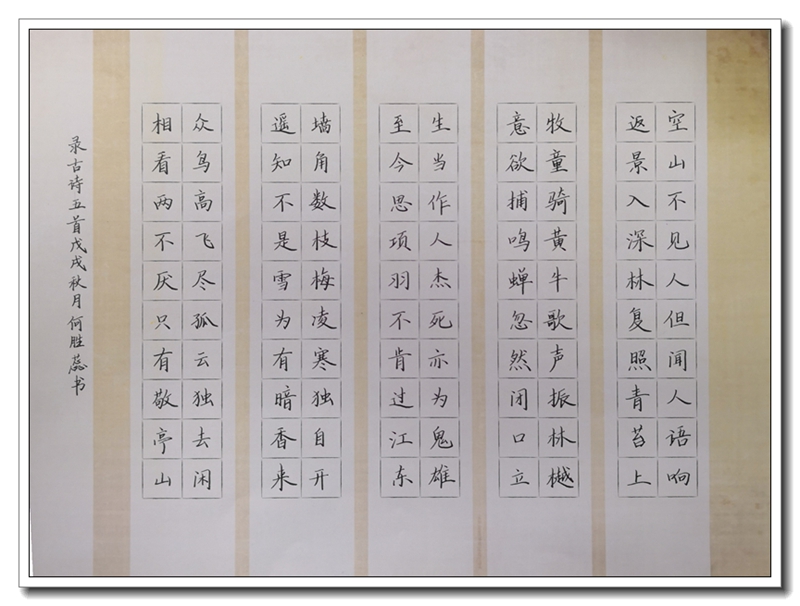 空山不见人但闻人语响
返景入深林复照青苔上
牧童骑黄牛歌声振林樾
意欲捕鸣蝉忽然闭口立
生当作人杰死亦为鬼雄
至今思项羽不肯过江东
墙角数枝梅凌寒独自开
遥知不是雪为有暗香来
众鸟高飞尽孤云独去闲
相看两不厌只有敬亭山
录古诗五首戊戌秋月何胜蕊书